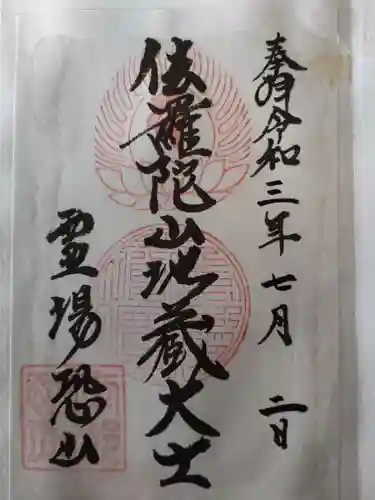 奉拝令和三年七月二日
伽羅陀山地蔵大士
霊場恐山